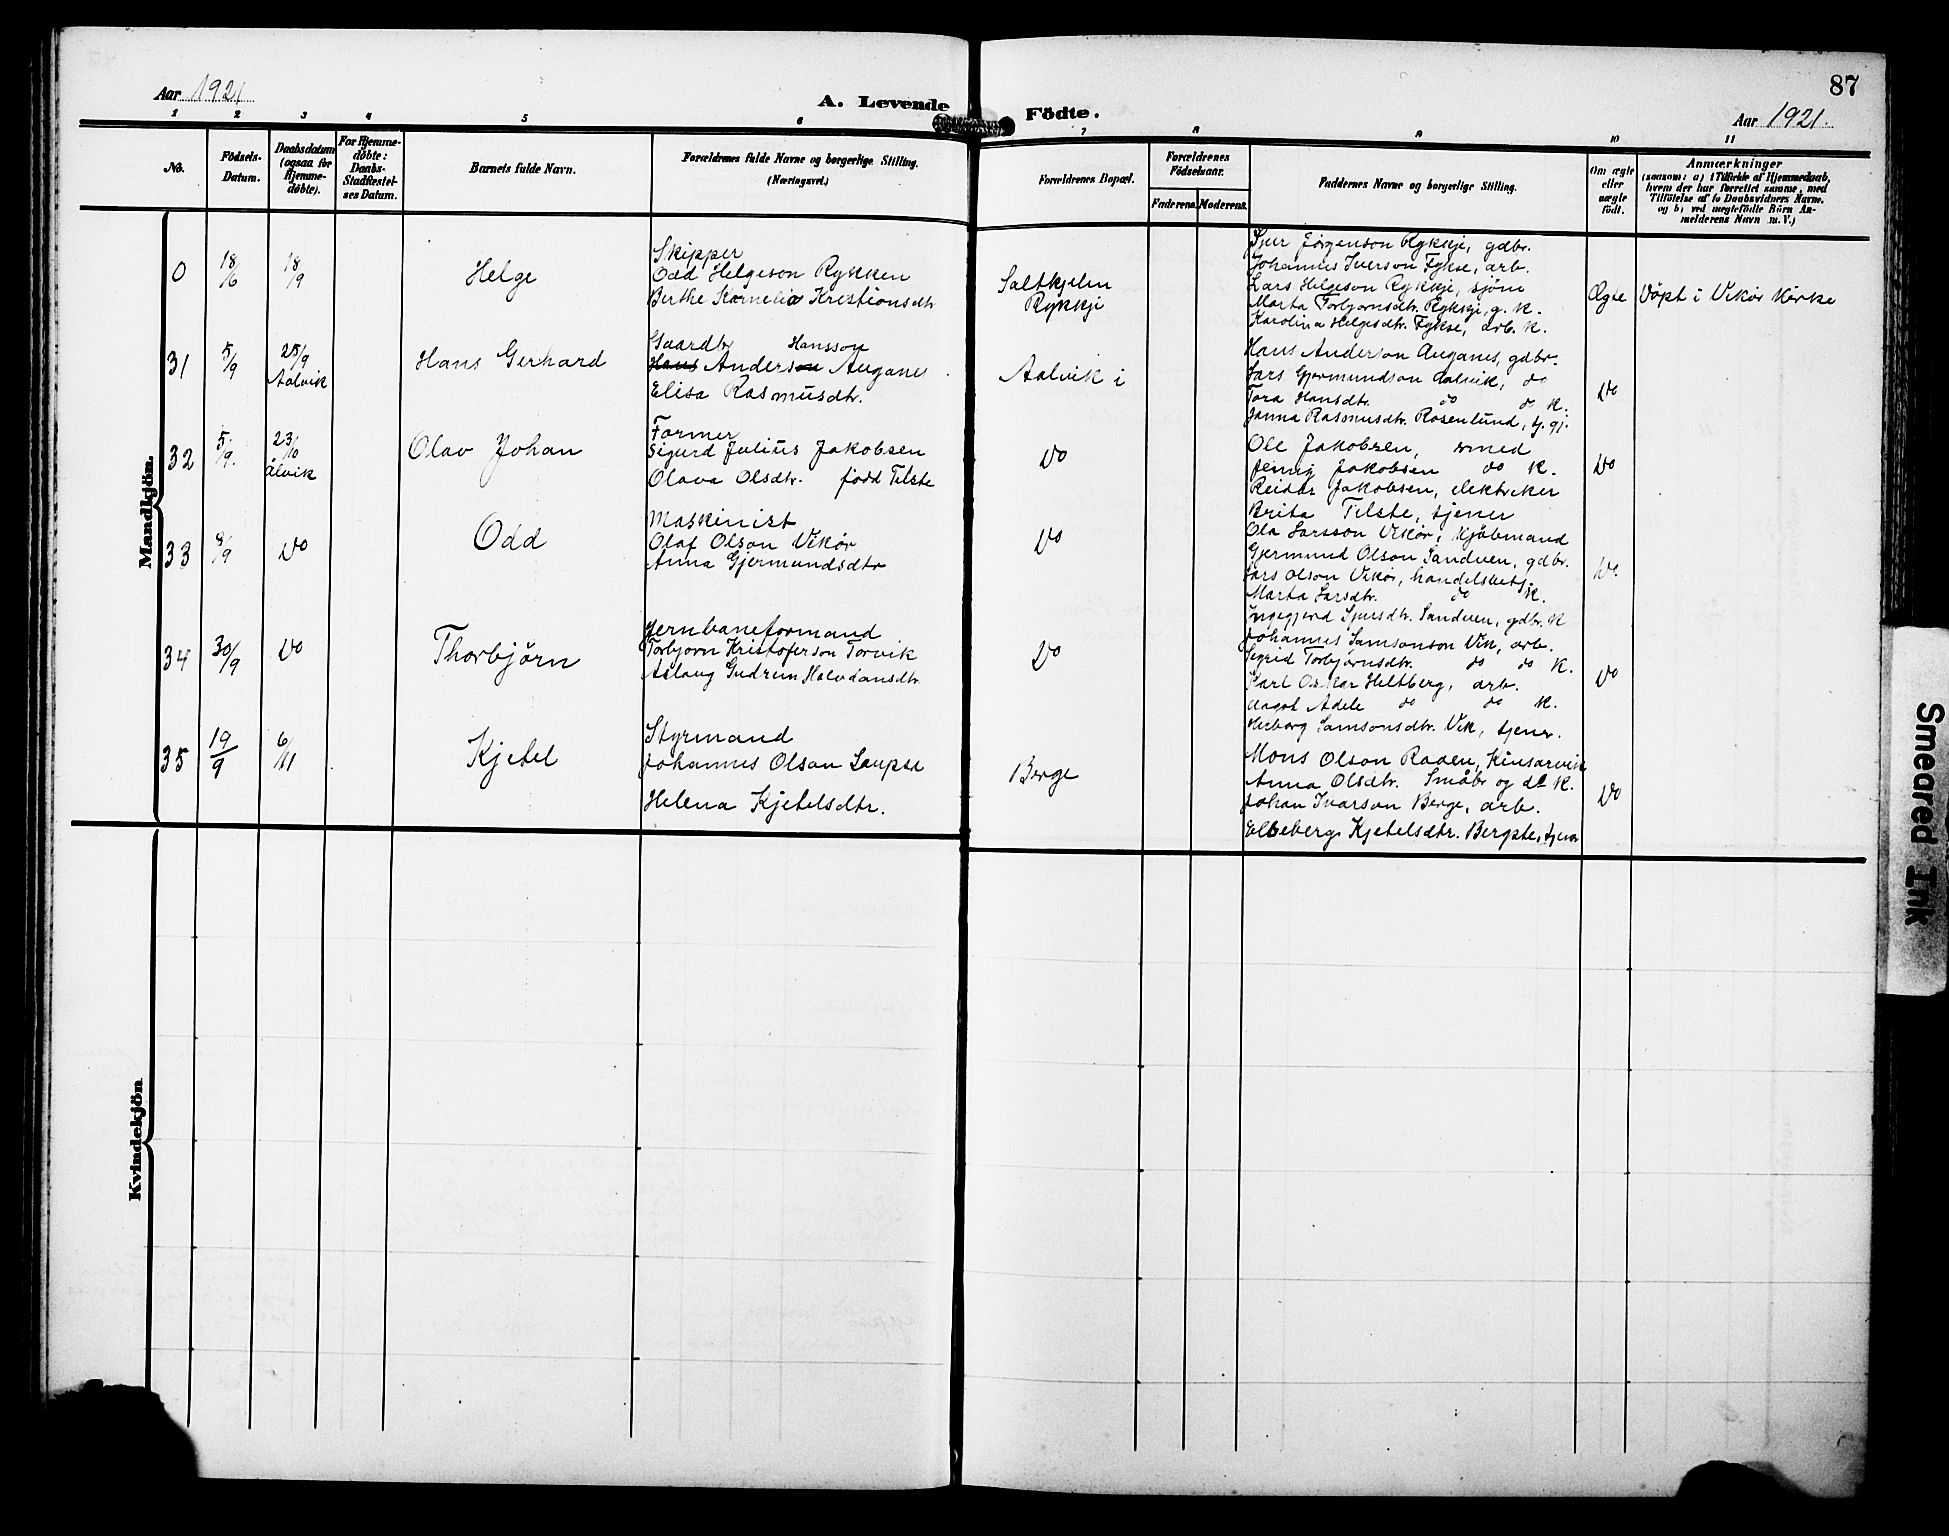 87
Aar 1921
A. Levende Födte.
Aar 1921.
1 2 3 4 5 6 7 8 9 10 11
No.
Födsels-
Datum.
Daabsdatum
(ogsaa for
Hjemme-
döbte).
For Hjemme-
döbte:
Daabs-
Stadfæstel-
ses Datum.
Barnets fulde Navn.
Forældrenes fulde Navne og borgerlige Stilling.
(Næringsvei.)
Forældrenes Bopæl.
Forældrenes
Födselsaar.
Faderens.
Moderens.
Faddernes Navne og borgerlige Stilling.
Om ægte
eller
uægte
födt.
Anmærkninger
(saasom: a) i Tilfælde af Hjemmedaab,
hvem der har forrettet samme, med
Tilföielse af to Daabsvidners Navne,
og b) ved uægtefödte Börn An-
melderens Navn m. V.)
Mandkjön.
0
18/6
18/9
Helge
Skipper
Odd Helgeson Rykken
Berthe Kornelia Kristionsdtr
Saltkjelen
Rykkje
Sjur Jörgenson Rykkje, gdbr.
Johannes Iverson Fykse, arb.
Lars Helgeson Rykkje, sjöm
Marta Torbjornsdtr. Rykkje, g. k.
Karolina Helgesdtr. Fykse, arb. k.
Ægte
Döpt i Vikör Kirke
31
5/9
25/9
Aalvik
Hans Gerhard
Gaardbr Hansson
Hans Anderson Auganes
Elisa Rasmusdtr.
Aalvik i
Hans Anderson Auganes, gdbr.
Lars Gjermundson Aalvik, do
Tora Hansdtr. do do k.
Janna Rasmusdtr. Rosenlund, tj. gj.
Do
32
5/9.
23/10
Ålvik
Olav Johan
Former
Sigurd Julius Jakobsen
Olava Olsdtr. född Tilste
Do
Ole Jakobsen, smed
Jenny Jakobsen do k.
Reidar Jakobsen, elektriker
Brita Tilste, tjener
Do
33
8/9
Do
Odd
Maskinist
Olaf Olson Vikör
Anna Gjermundsdtr
Do
Ola Larsson Vikör, Kjöbmand
Gjermund Olson Sandven, gdbr.
Lars Olson Vikör, handelsbetj.
Marta Larsdtr. do k.
Ingegjerd Sjursdtr. Sandven, gdbr. k
Do.
34
30/9
Do
Thorbjörn
Jernbaneformand
Torbjorn Kristoferson Torvik
Aslaug Gudrun Halvdansdtr.
Do
Johannes Samsonson Vik, arb.
Sigrid Torbjornsdtr. do do k.
Karl Oskar Heltberg, arb.
Aagot Adele do do k.
Herborg Samsonsdtr. Vik, tjener.
Do
35
19/9
6/11
Kjetel
Styrmand
Johannes Olson Laupsa
Helena Kjetelsdtr.
Berge
Mons Olson Raaen, Kinsarvik
Anna Olsdtr. Småbr og do k.
Johan Ivarson Berge, arb.
Elseberg Kjetelsdtr. Bergste, tjener
Do
Kvindekjön
Smeared Ink